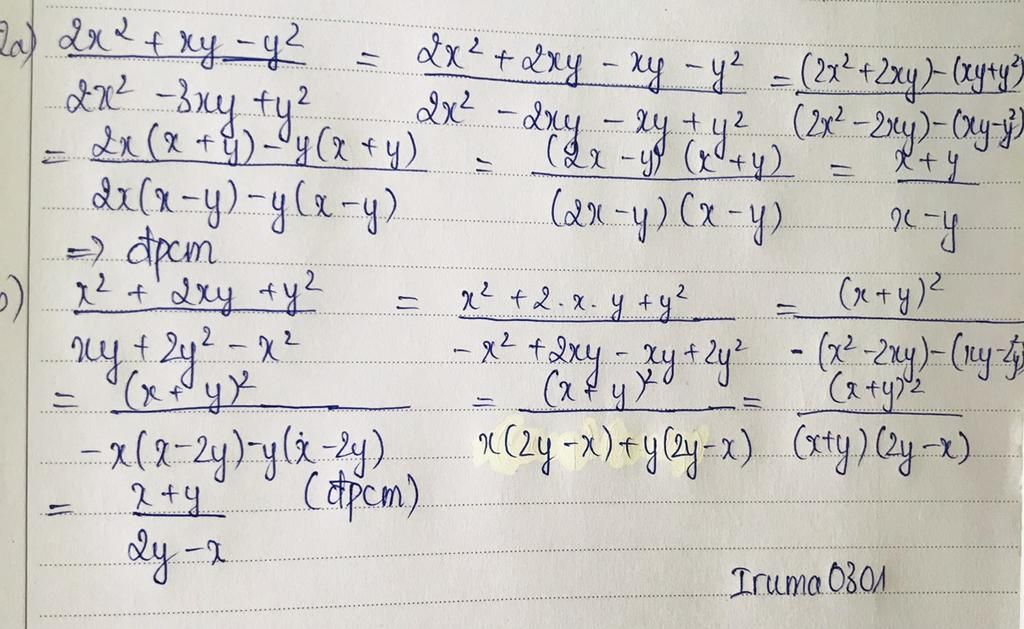 2a) (2x² + xy - y²)/(2x² - 3xy + y²) = (2x² + 2xy - xy - y²)/(2x² - 2xy - xy + y²) = ((2x² + 2xy) - (xy + y²))/((2x² - 2xy) - (xy - y²))
= (2x(x + y) - y(x + y))/(2x(x - y) - y(x - y)) = ((2x - y)(x + y))/((2x - y)(x - y)) = (x + y)/(x - y)
=> đpcm
b) (x² + 2xy + y²)/(xy + 2y² - x²) = (x² + 2.x.y + y²)/(-x² + 2xy - xy + 2y²) = (x + y)²/(-(x² - 2xy) - (xy - 2y²))
= (x + y)²/(-x(x - 2y) - y(x - 2y)) = (x + y)²/(x(2y - x) + y(2y - x)) = (x + y)²/((x + y)(2y - x))
= (x + y)/(2y - x) (đpcm)
Iruma0301